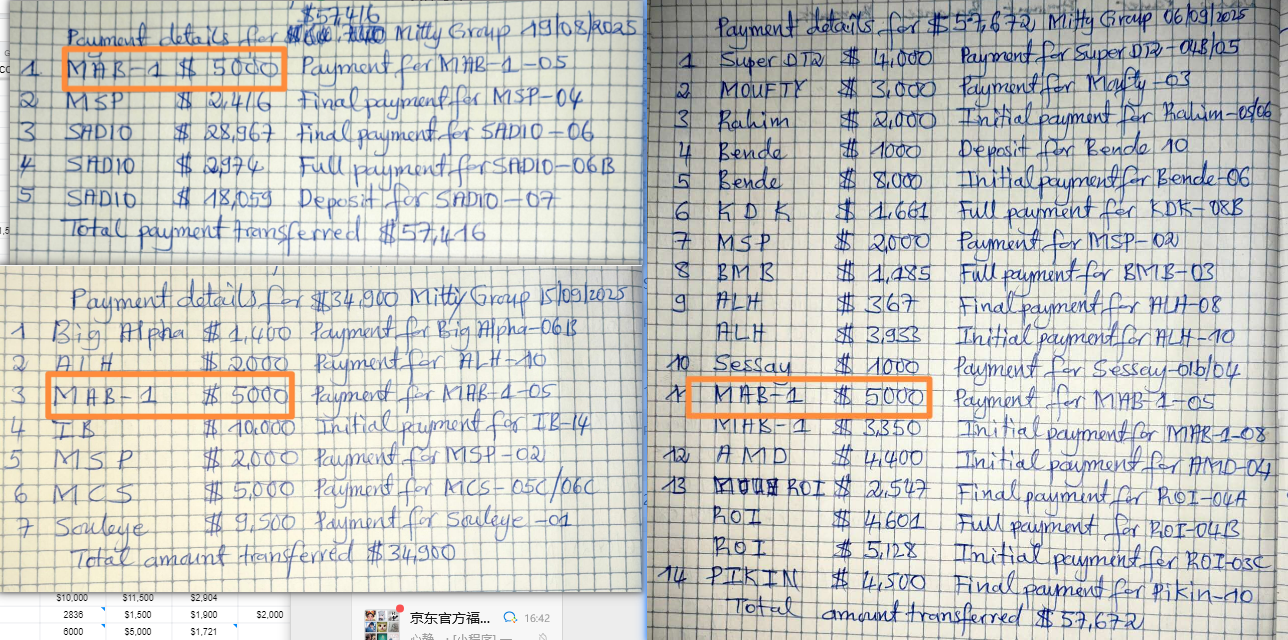 $57,416
Payment details for Mitty Group 19/08/2025
1 MAB-1 $ 5000 Payment for MAB-1-05
2 MSP $ 2,416 Final payment for MSP-04
3 SADIO $ 28,967 Final payment for SADIO-06
4 SADIO $ 2,974 Full payment for SADIO-06B
5 SADIO $ 18,059 Deposit for SADIO-07
Total payment transferred $57,416
Payment details for $34,900 Mitty Group 15/09/2025
1 Big Alpha $ 1,400 Payment for Big Alpha-06B
2 ALH $ 2000 Payment for ALH-10
3 MAB-1 $ 5000 Payment for MAB-1-05
4 IB $ 10,000 Initial payment for IB-14
5 MSP $ 2,000 Payment for MSP-02
6 MCS $ 5,000 Payment for MCS-05C/06C
7 Souleye $ 9,500 Payment for Souleye-01
Total amount transferred $34,900
Payment details for $57,672 Mitty Group 06/09/2025
1 Super DT2 $ 4,000 Payment for Super DT2-04B/05
2 MOUFTY $ 3,000 Payment for Moufty-03
3 Rahim $ 2,000 Initial payment for Rahim-05/06
4 Bende $ 1000 Deposit for Bende 10
5 Bende $ 8,000 Initial payment for Bende-06
6 KDK $ 1,661 Full payment for KDK-08B
7 MSP $ 2,000 Payment for MSP-02
8 BMB $ 1,185 Full payment for BMB-03
9 ALH $ 367 Final payment for ALH-08
ALH $ 3,933 Initial payment for ALH-10
10 Sessay $ 1000 Payment for Sessay-01b/04
11 MAB-1 $ 5000 Payment for MAB-1-05
MAB-1 $ 3,350 Initial payment for MAB-1-08
12 AMD $ 4,400 Initial payment for AMD-04
13 ROI $ 2,547 Final payment for ROI-04A
ROI $ 4,601 Full payment for ROI-04B
ROI $ 5,128 Initial payment for ROI-03C
14 PIKIN $ 4,500 Final payment for Pikin-10
Total amount transferred $57,672
$10,000 $11,500 $2,904
2836 $1,500 $1,900 $2,000
6000 $5,000 $1,721
京东官方福... 16:42